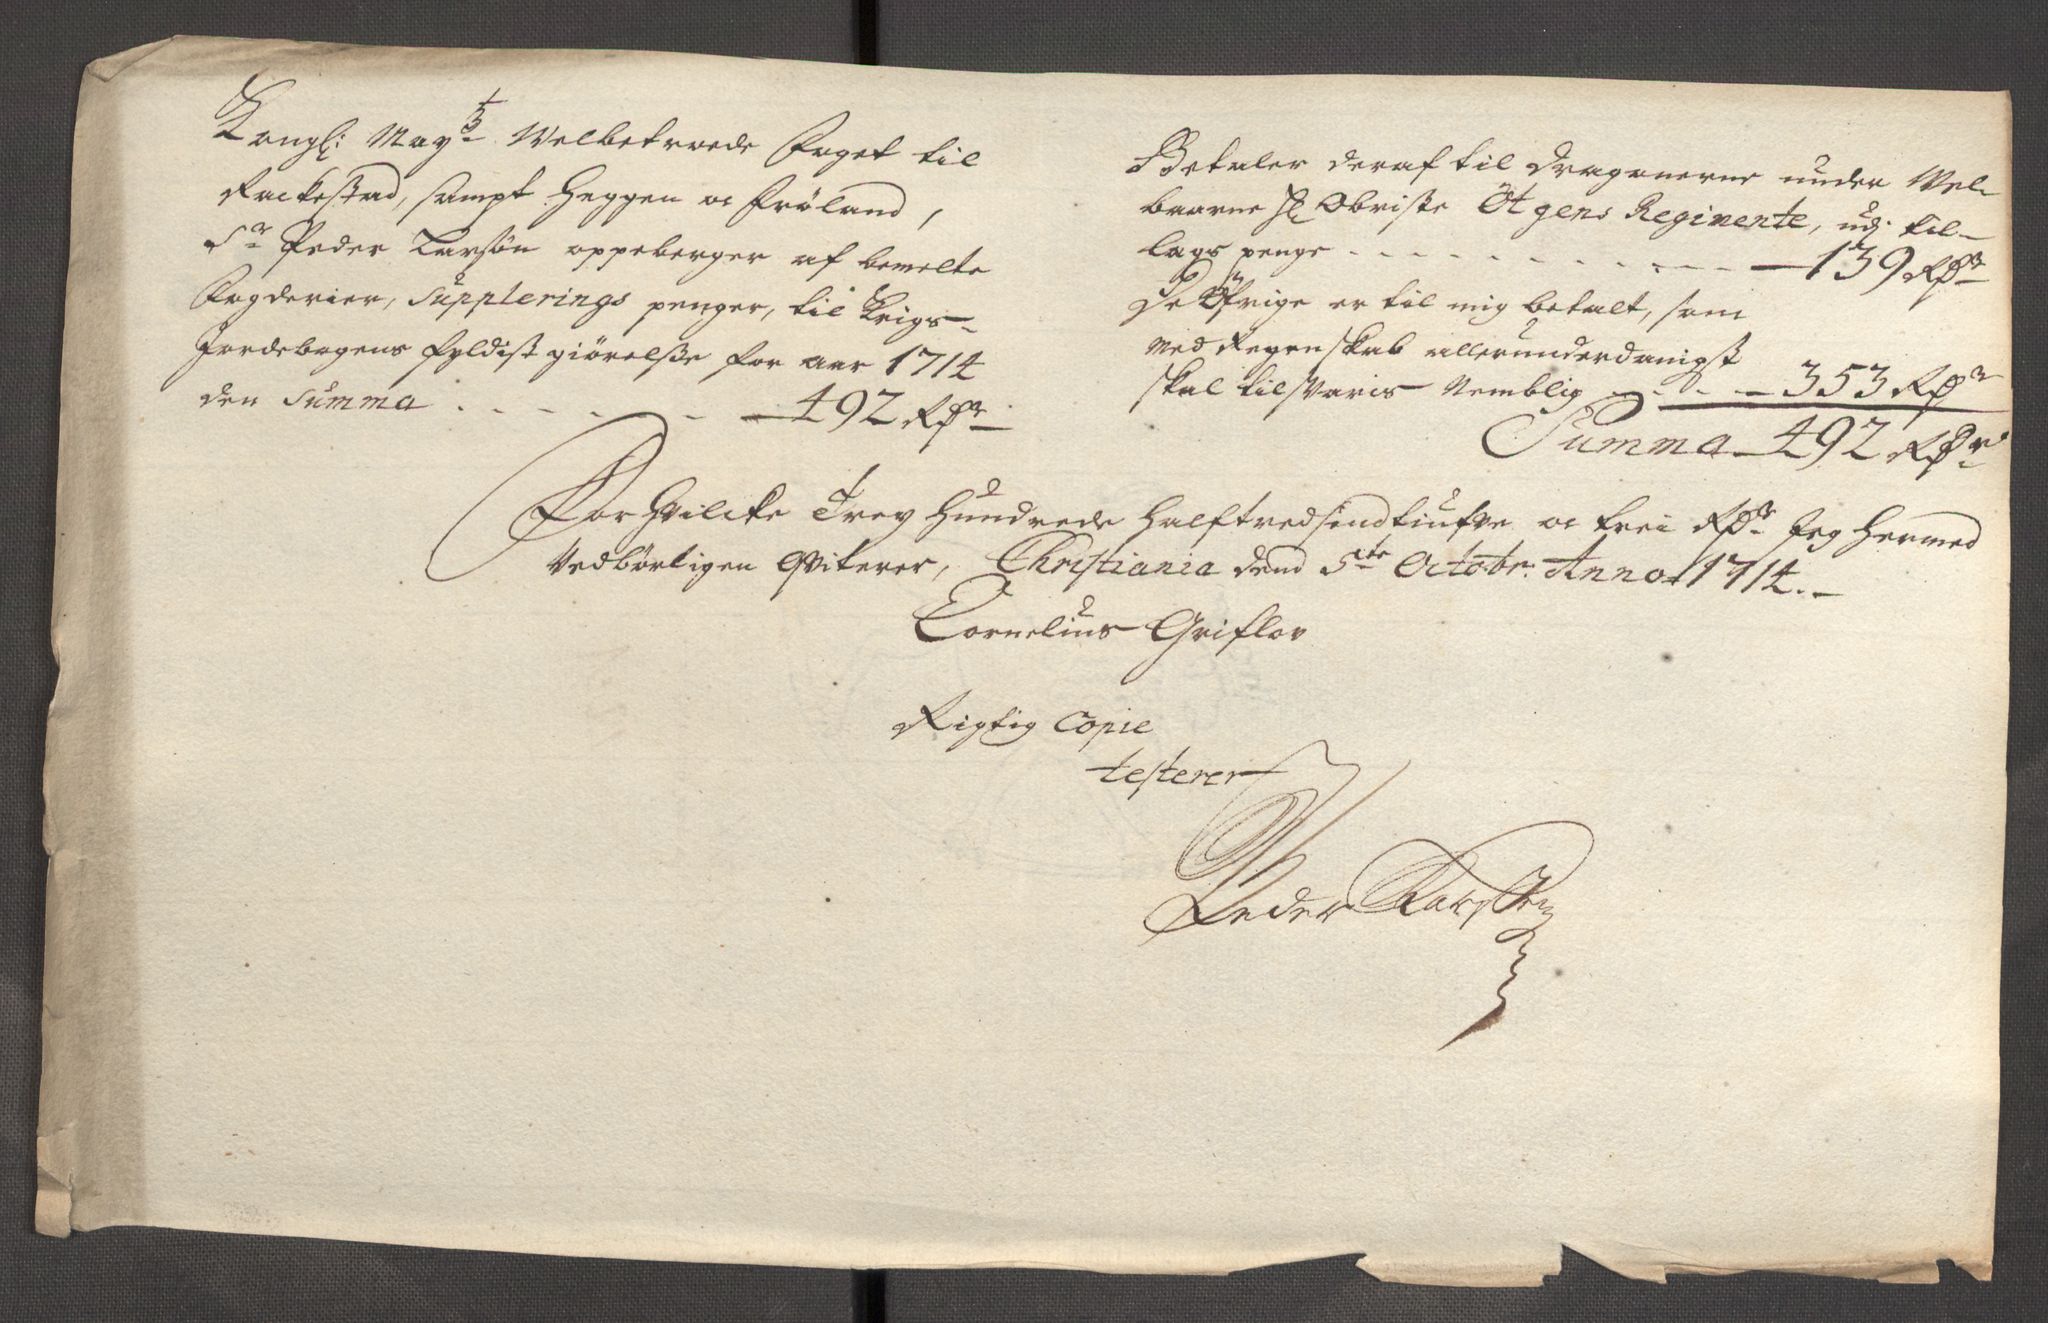 Kongl: May:ts Velbetroede Foget til
Rackestad, sampt Heggen oc Fröland,
Sr Peder Larsön oppeberger af bemelte
Fogderier, Supplerings penger, til Krigs-
Jordebogens fyldist giörelsse for aar 1714
den Summa . - - - - - 492 Rdr
Betaler deraf til Dragonerne under Vel-
baarne Hr Obriste Ötgens Regimente, udj til-
lags penge - - - - - - - - - - 139 Rdr
De Öfrige er til mig betalt, som
med Regenskab allerunderdanigst
skal tilsvaris Nemblig - - - 353 Rdr
Summa 492 Rdr
For hvilcke Trey Hundrede Halftredsindtiufve oc trei Rdr Jeg hermed
vedbörligen qviterer, Christiania dend 5te Octobr: Anno 1714.-
Cornelius Griflov
Rigtig Copie
testerer
Peder Larssen